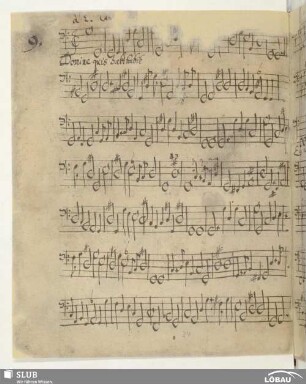 9.
Domine quis habitabit
SLUB
Wir führen Wissen.
LÖBAU